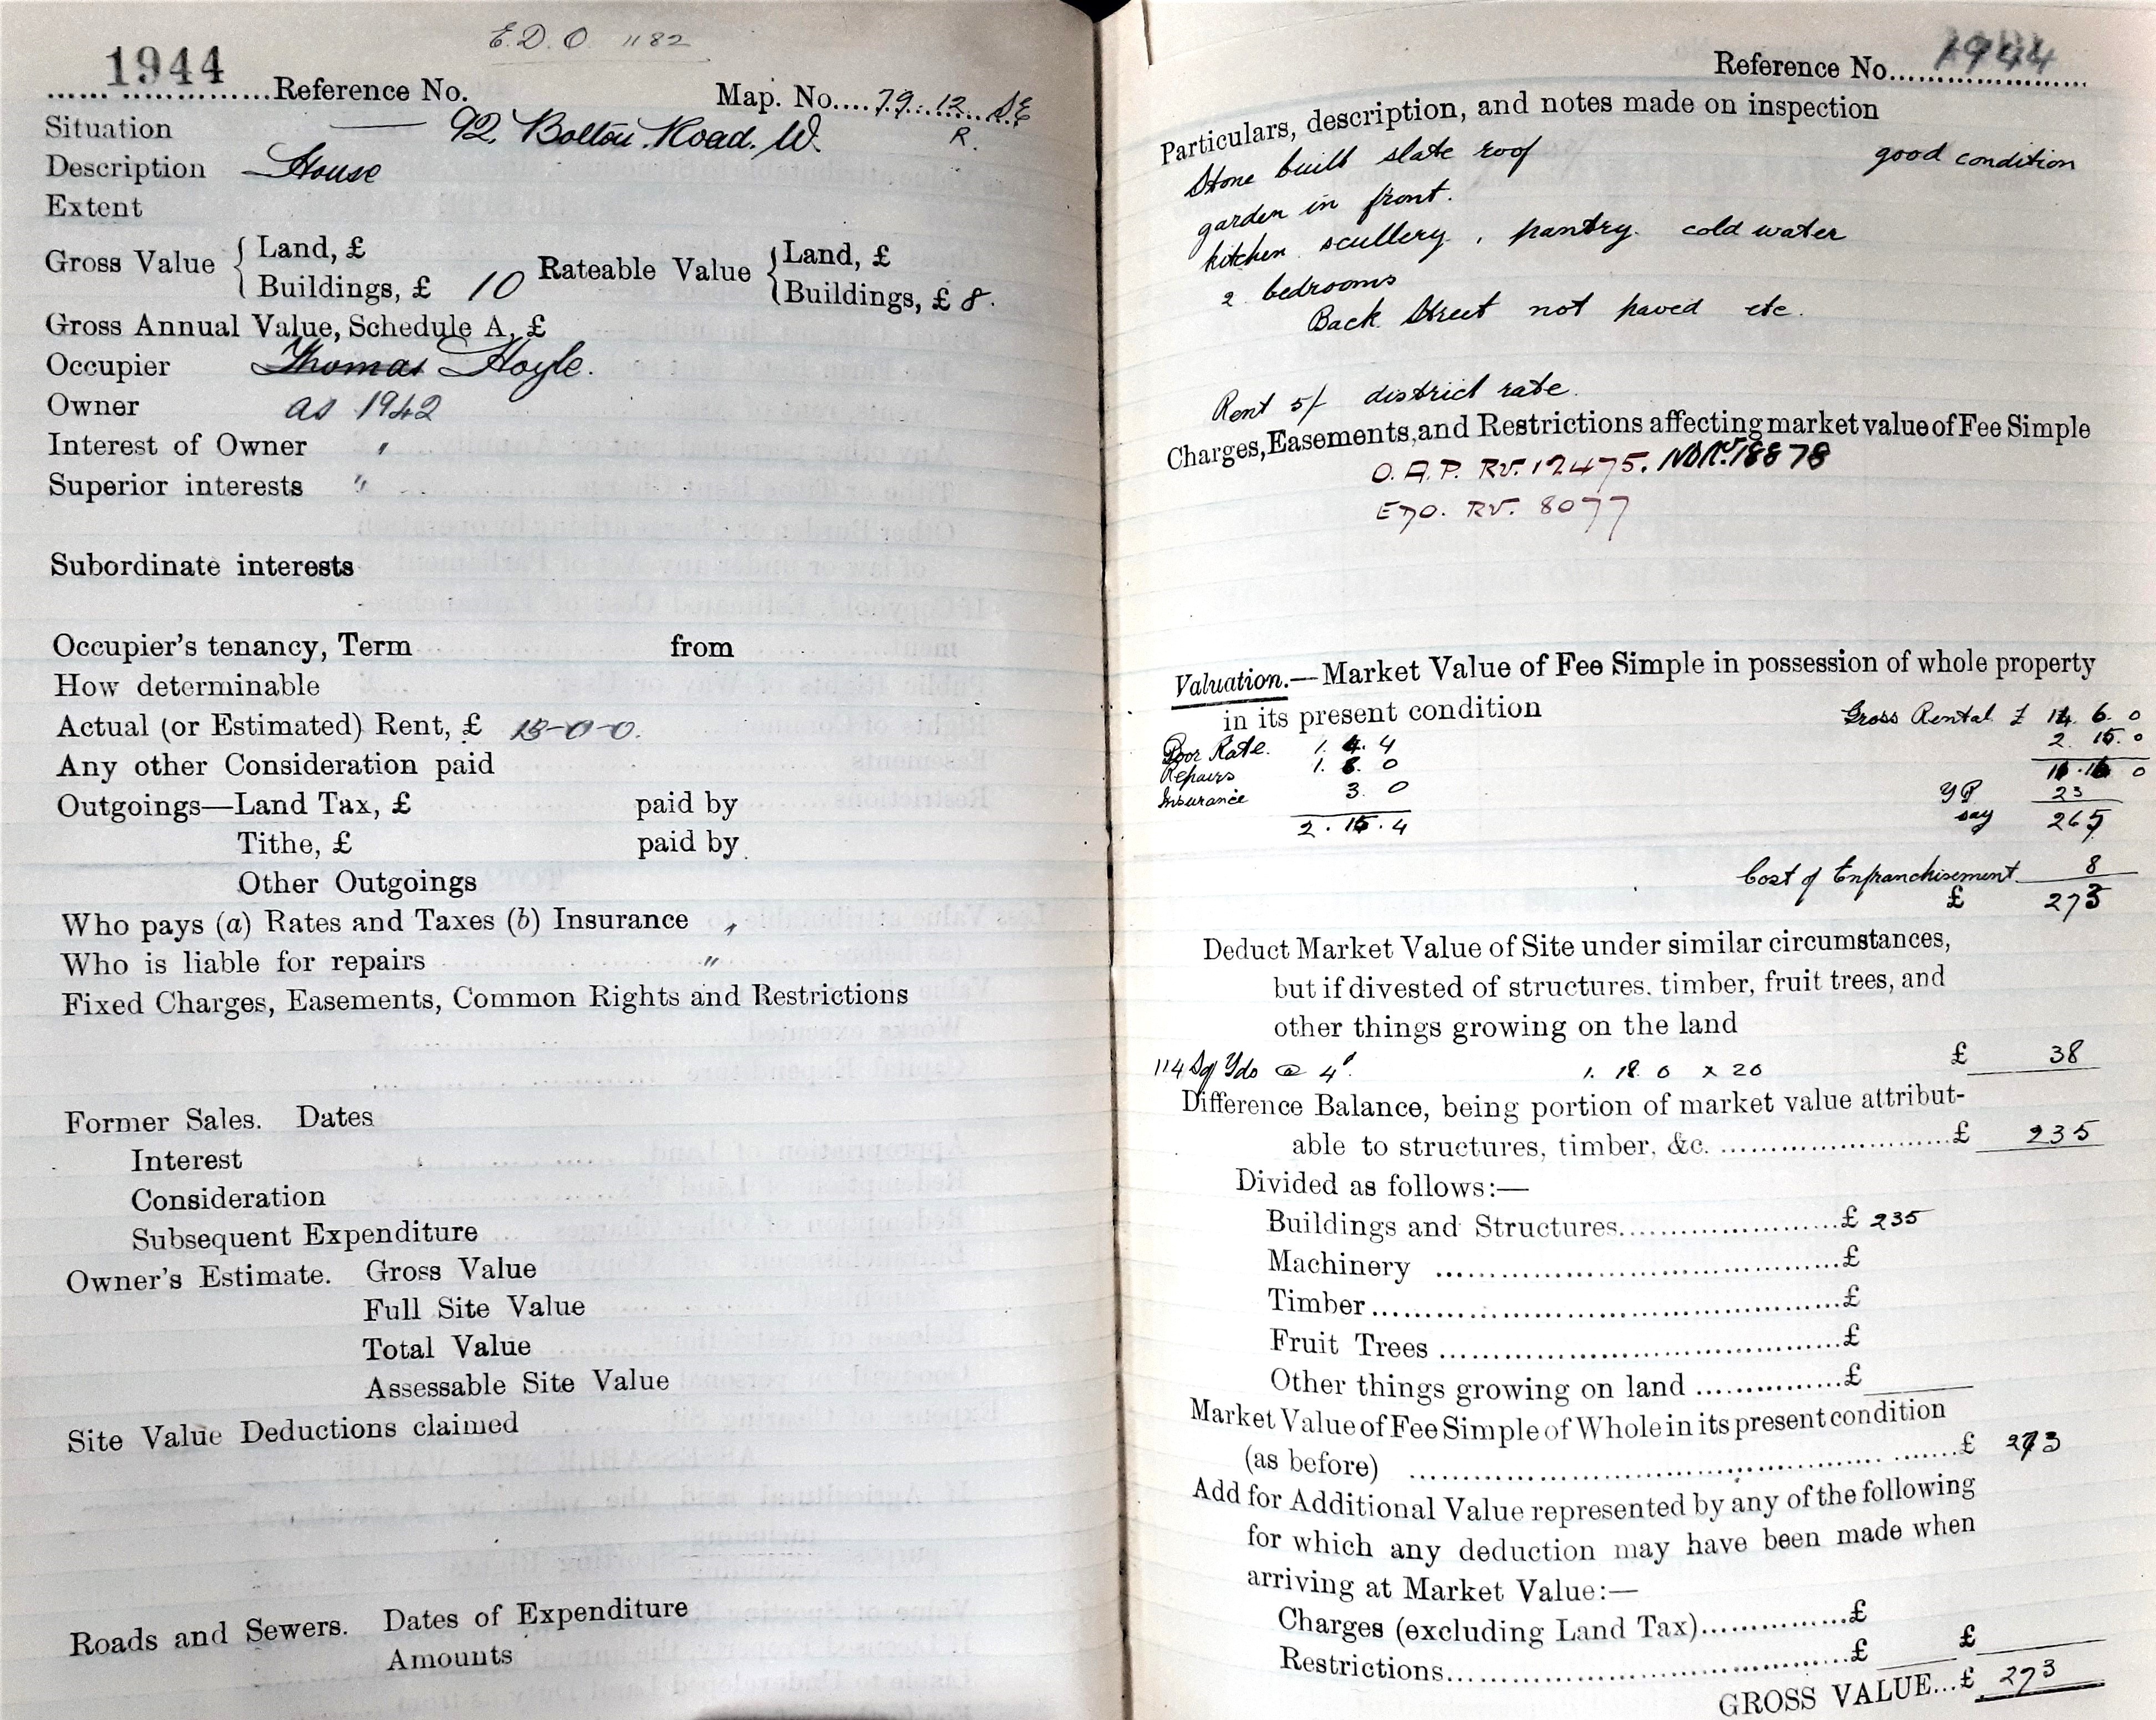 E.D.O. 1182
1944
Reference No.
Map. No. 79. 12. SE
R.
Situation 92. Bolton Road. W.
Description House
Extent
Gross Value { Land, £
Buildings, £ 10
Rateable Value { Land, £
Buildings, £ 8.
Gross Annual Value, Schedule A, £
Occupier Thomas Hoyle.
Owner as 1942
Interest of Owner "
Superior interests "
Subordinate interests
Occupier's tenancy, Term from
How determinable
Actual (or Estimated) Rent, £ 13-0-0.
Any other Consideration paid
Outgoings—Land Tax, £ paid by
Tithe, £ paid by
Other Outgoings
Who pays (a) Rates and Taxes (b) Insurance "
Who is liable for repairs "
Fixed Charges, Easements, Common Rights and Restrictions
Former Sales. Dates
Interest
Consideration
Subsequent Expenditure
Owner's Estimate. Gross Value
Full Site Value
Total Value
Assessable Site Value
Site Value Deductions claimed
Roads and Sewers. Dates of Expenditure
Amounts
Reference No. 1944
Particulars, description, and notes made on inspection
Stone built slate roof good condition
garden in front.
kitchen scullery, pantry. cold water
2 bedrooms
Back Street not paved etc.
Rent 5/- district rate.
Charges, Easements, and Restrictions affecting market value of Fee Simple
O.A.P. RV. 12475. 18878
EDO. RV. 8077
Valuation.—Market Value of Fee Simple in possession of whole property
in its present condition
Gross Rental £ 14. 6. 0
Poor Rate. 1. 4. 4
2. 15. 0
Repairs 1. 8. 0
0
Insurance 3. 0
YP 23
2. 15. 4
say 265
Cost of Enfranchisement 8
£ 273
Deduct Market Value of Site under similar circumstances,
but if divested of structures, timber, fruit trees, and
other things growing on the land
114 Sq Yds @ 4d. 1. 18. 0 x 20 £ 38
Difference Balance, being portion of market value attribut-
able to structures, timber, &c. £ 235
Divided as follows:—
Buildings and Structures £ 235
Machinery £
Timber £
Fruit Trees £
Other things growing on land £
Market Value of Fee Simple of Whole in its present condition
(as before) £ 273
Add for Additional Value represented by any of the following
for which any deduction may have been made when
arriving at Market Value:—
Charges (excluding Land Tax) £
Restrictions £ £
GROSS VALUE...£ 273